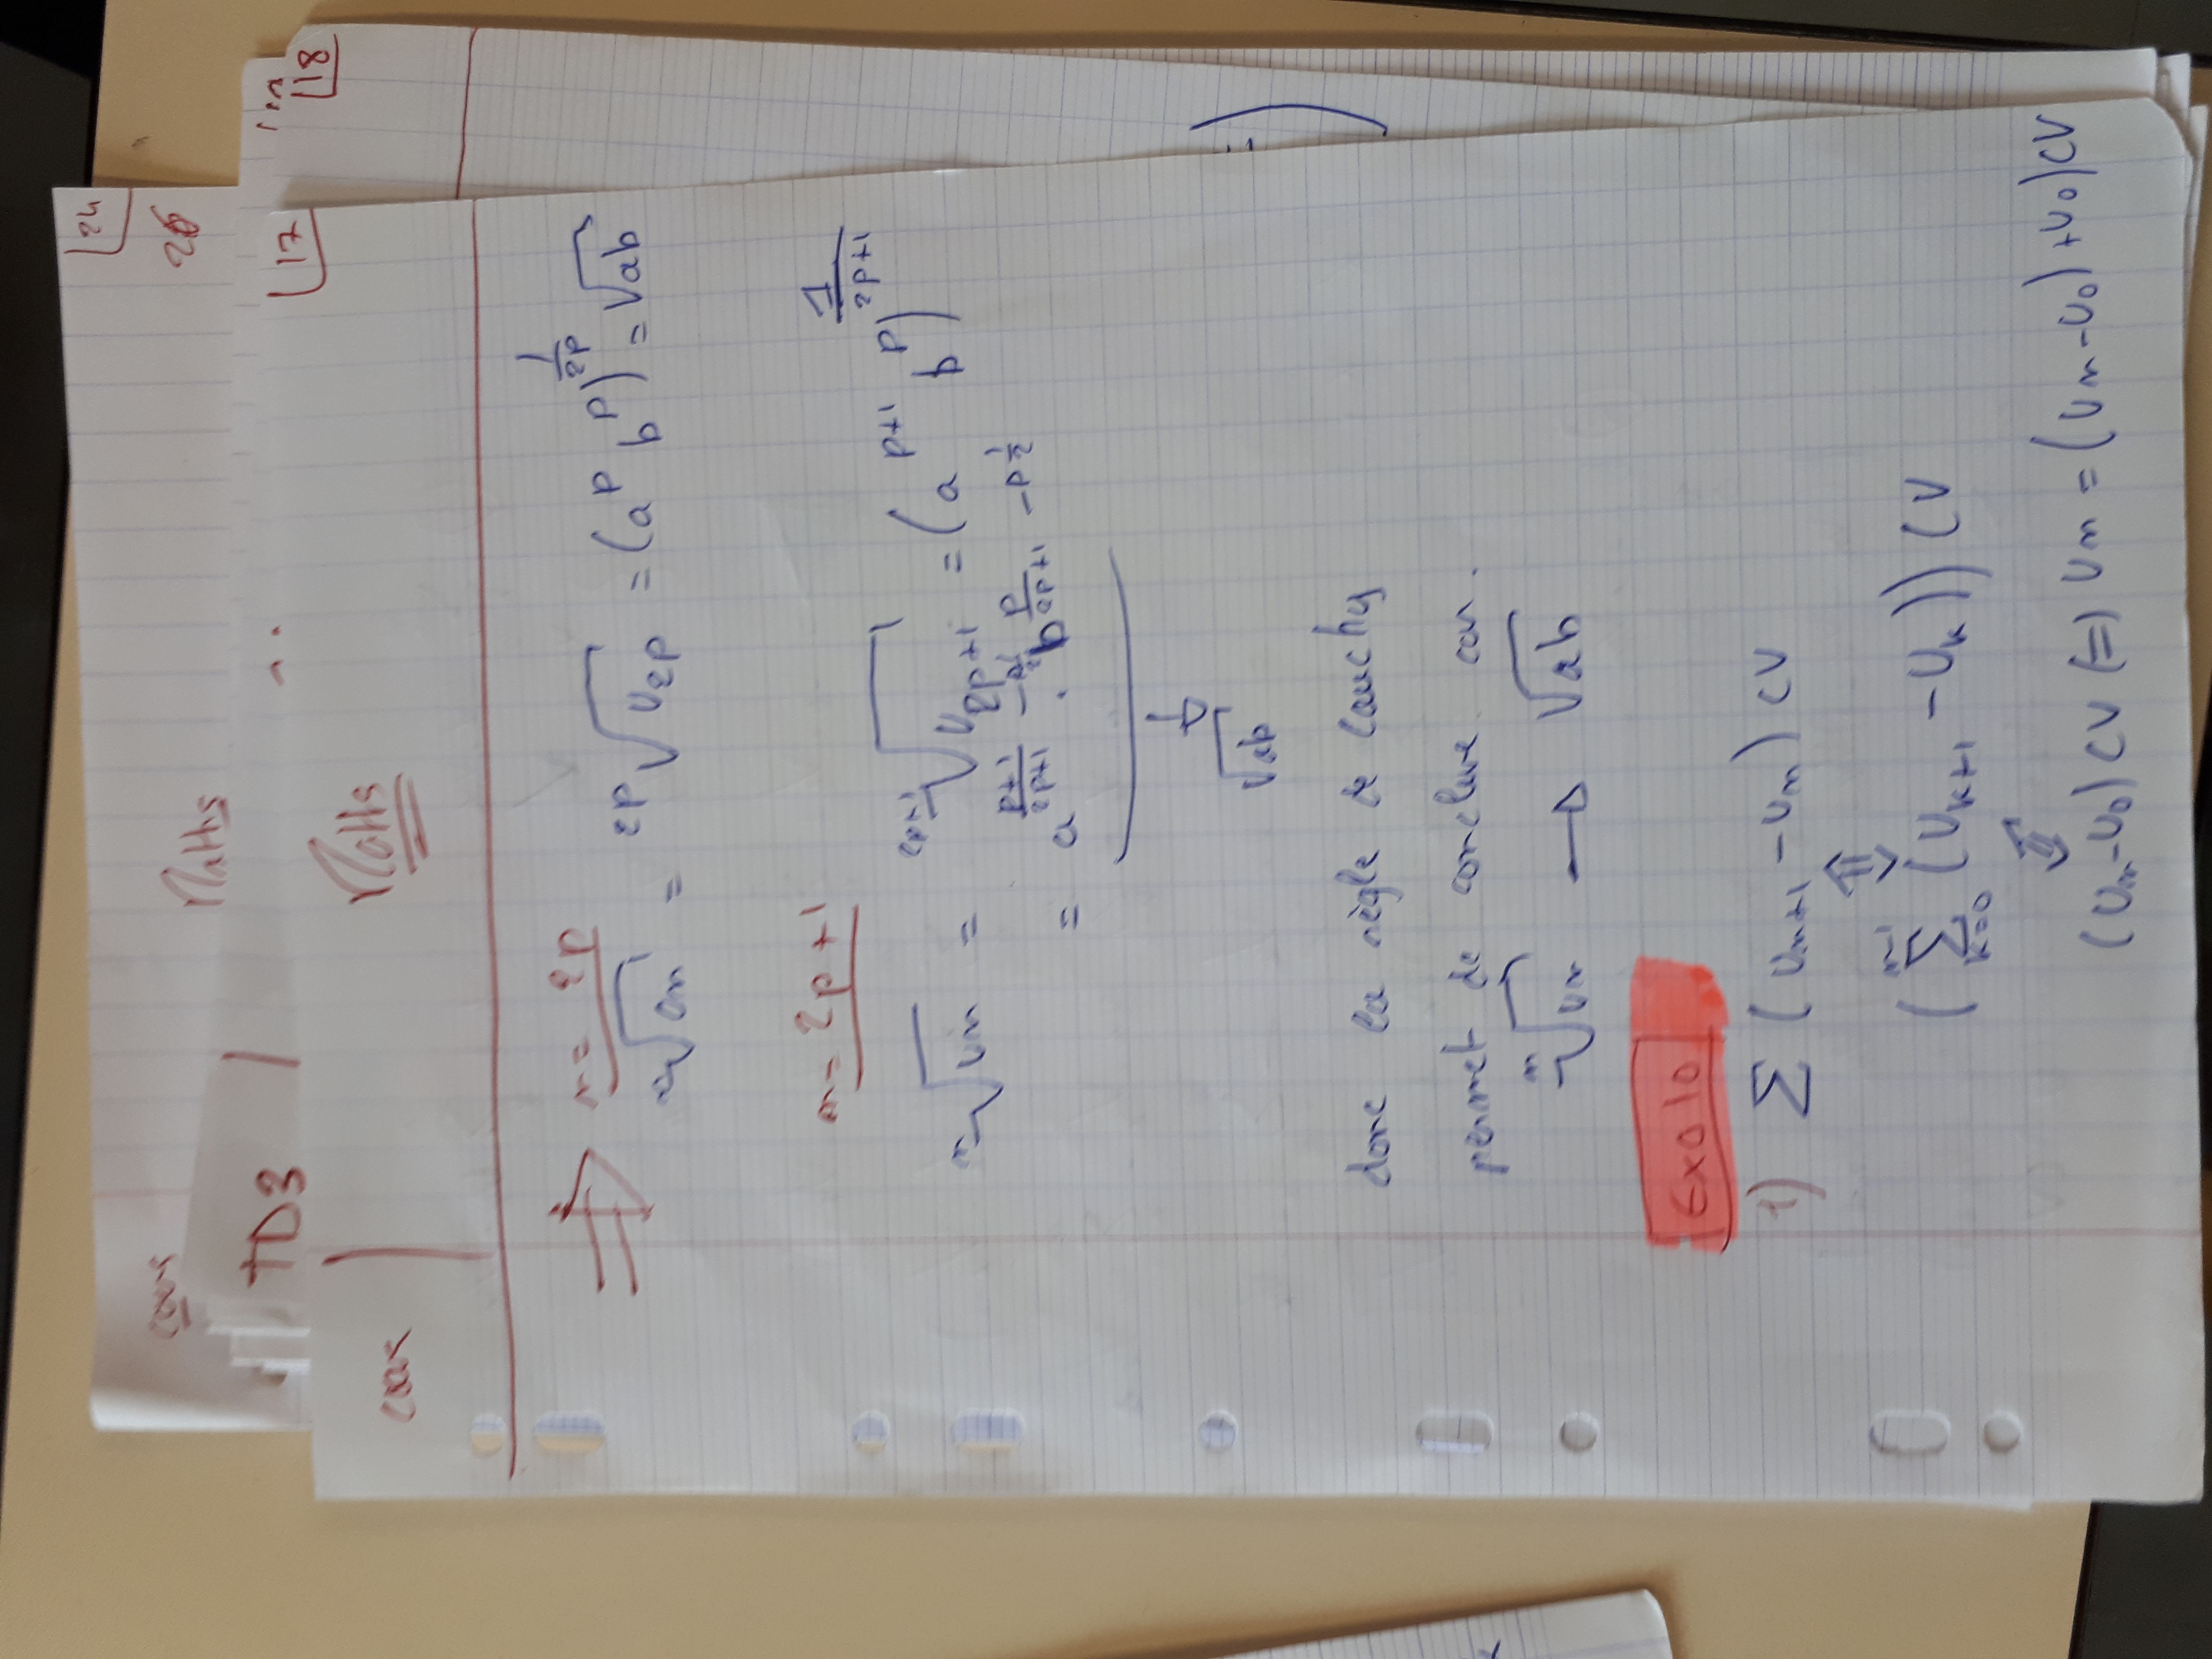 24
cours Maths 26
18
TD3
17
cour Maths
n = 2p
ⁿ√un = ²ᵖ√U2p = (a^p b^p)^(1/2p) = √ab
n = 2p+1
ⁿ√un = ²ᵖ⁺¹√U2p+1 = (a^(p+1) b^p)^(1/(2p+1))
= a^((p+1)/(2p+1)) · b^(p/(2p+1))
√ab
donc la règle de Cauchy
permet de conclure car.
ⁿ√un → √ab
Exo 10
1) Σ (un+1 - un) CV
⇕
(Σ_{k=0}^{n-1} (Uk+1 - Uk)) CV
⇕
(Un-U0) CV (=) Un = (Un-U0)+U0) CV